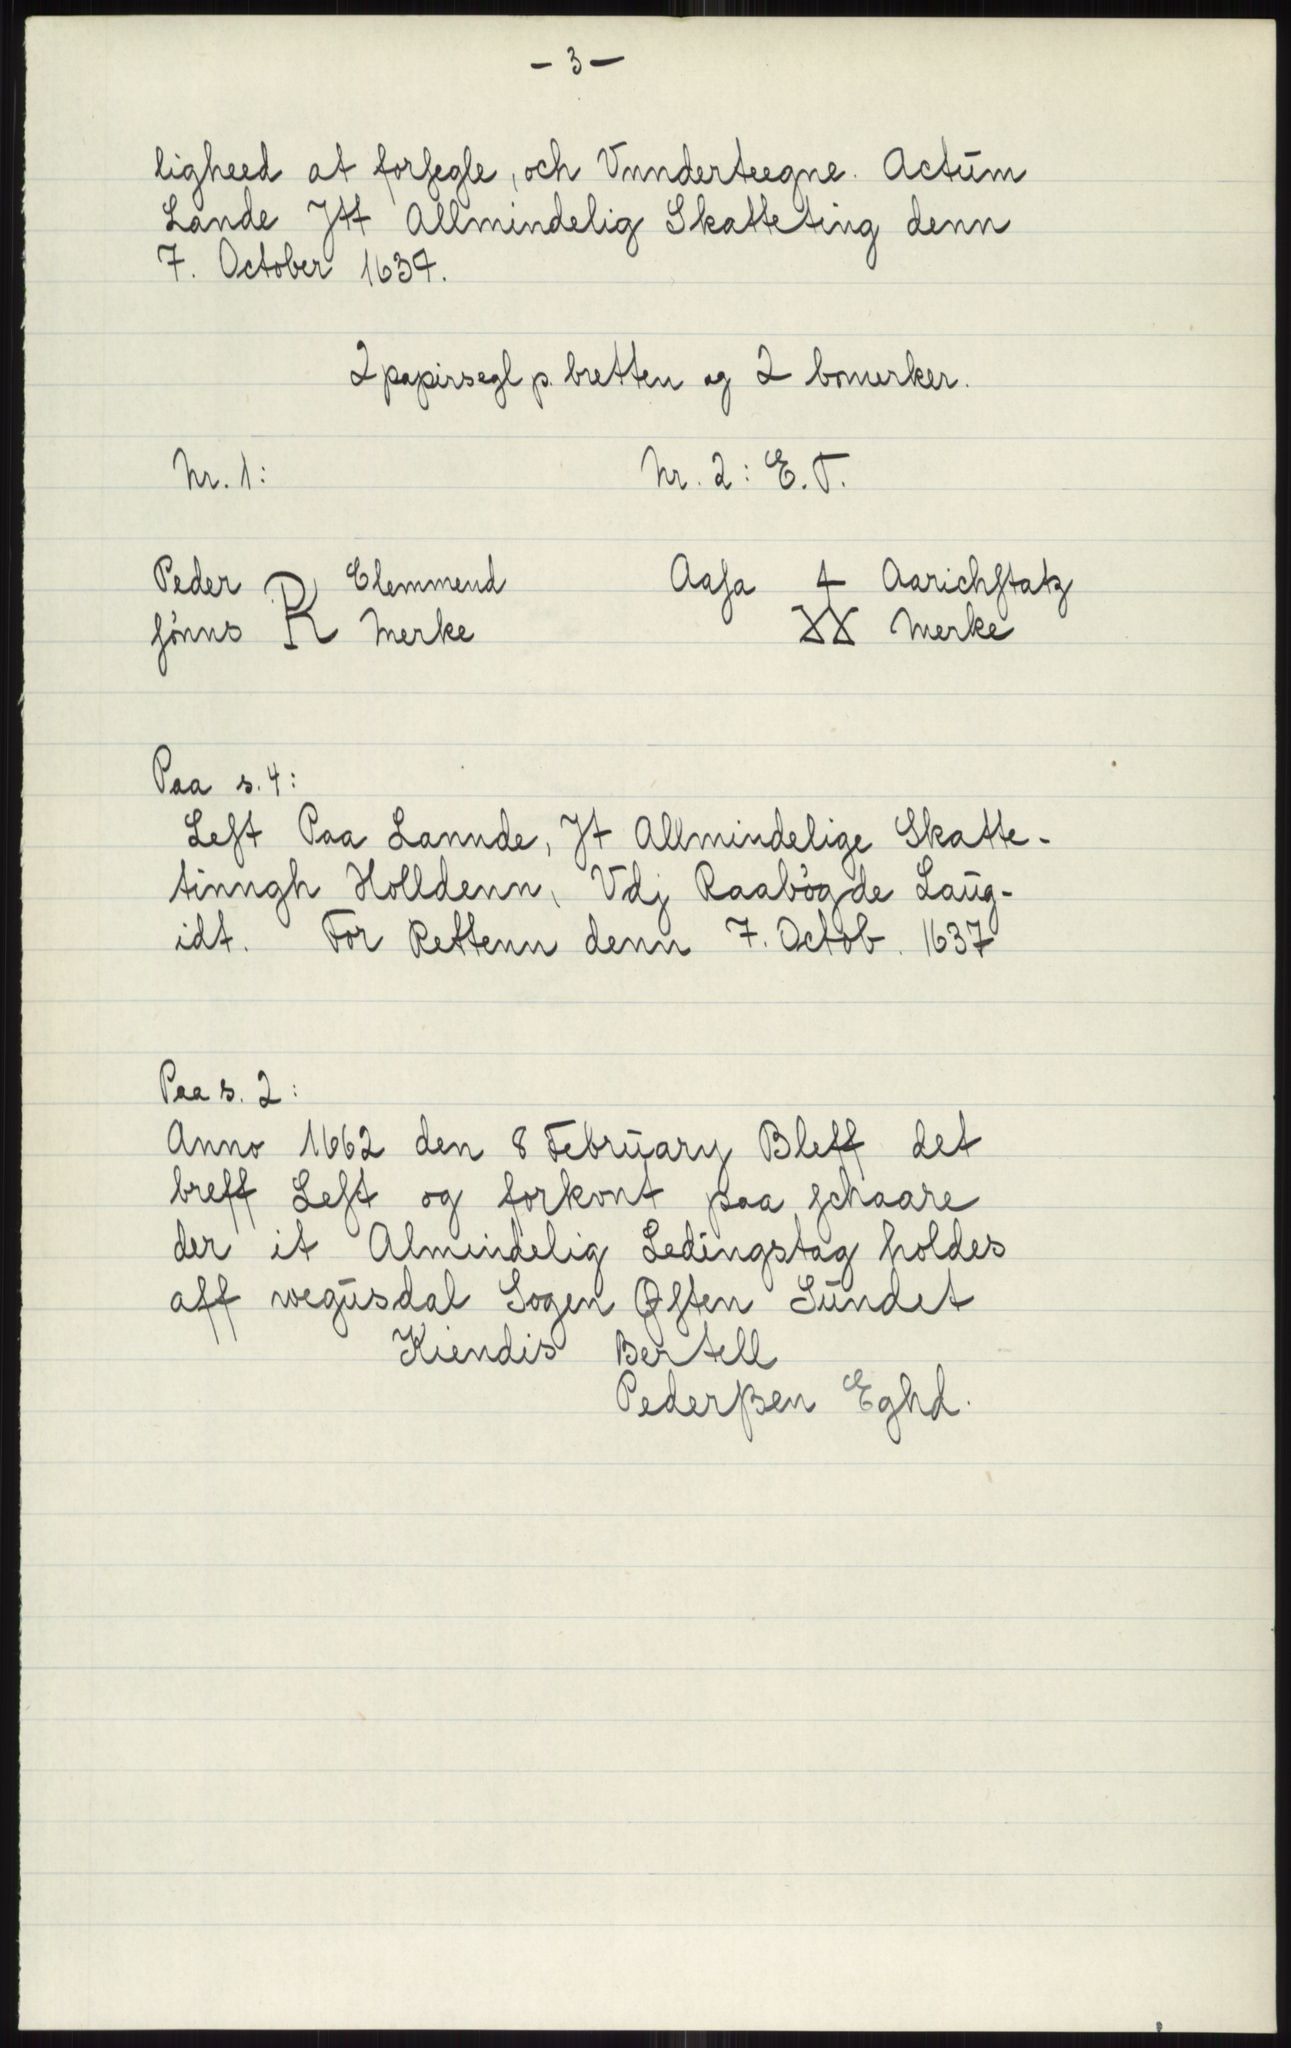 - 3 -
ligheed at forsegle, och Vnnderteegne. Actum
Lande Jtt Allmindelig Skatteting denn
7. October 1637.
2 papirsegl p. bretten og 2 bomerker.
Nr. 1: Nr. 2: E.T.
Peder R Clemmend Aasa Aarichstatz
sønns Merke Merke
Paa s. 4:
Lest Paa Lannde, Jt Allmindelige Skatte-
tinngh Holldenn, Vdj Raabøgde Laug-
idt. For Rettenn denn 7. Octob. 1637
Paa s. 2:
Anno 1662 den 8 February Bleff det
breff Lest og forkont paa schaare
der it Almindelig Ledingstag holdes
aff wegusdal Sogen Østen Sundet
Kiendis Bertell
Pederßen Eghd.